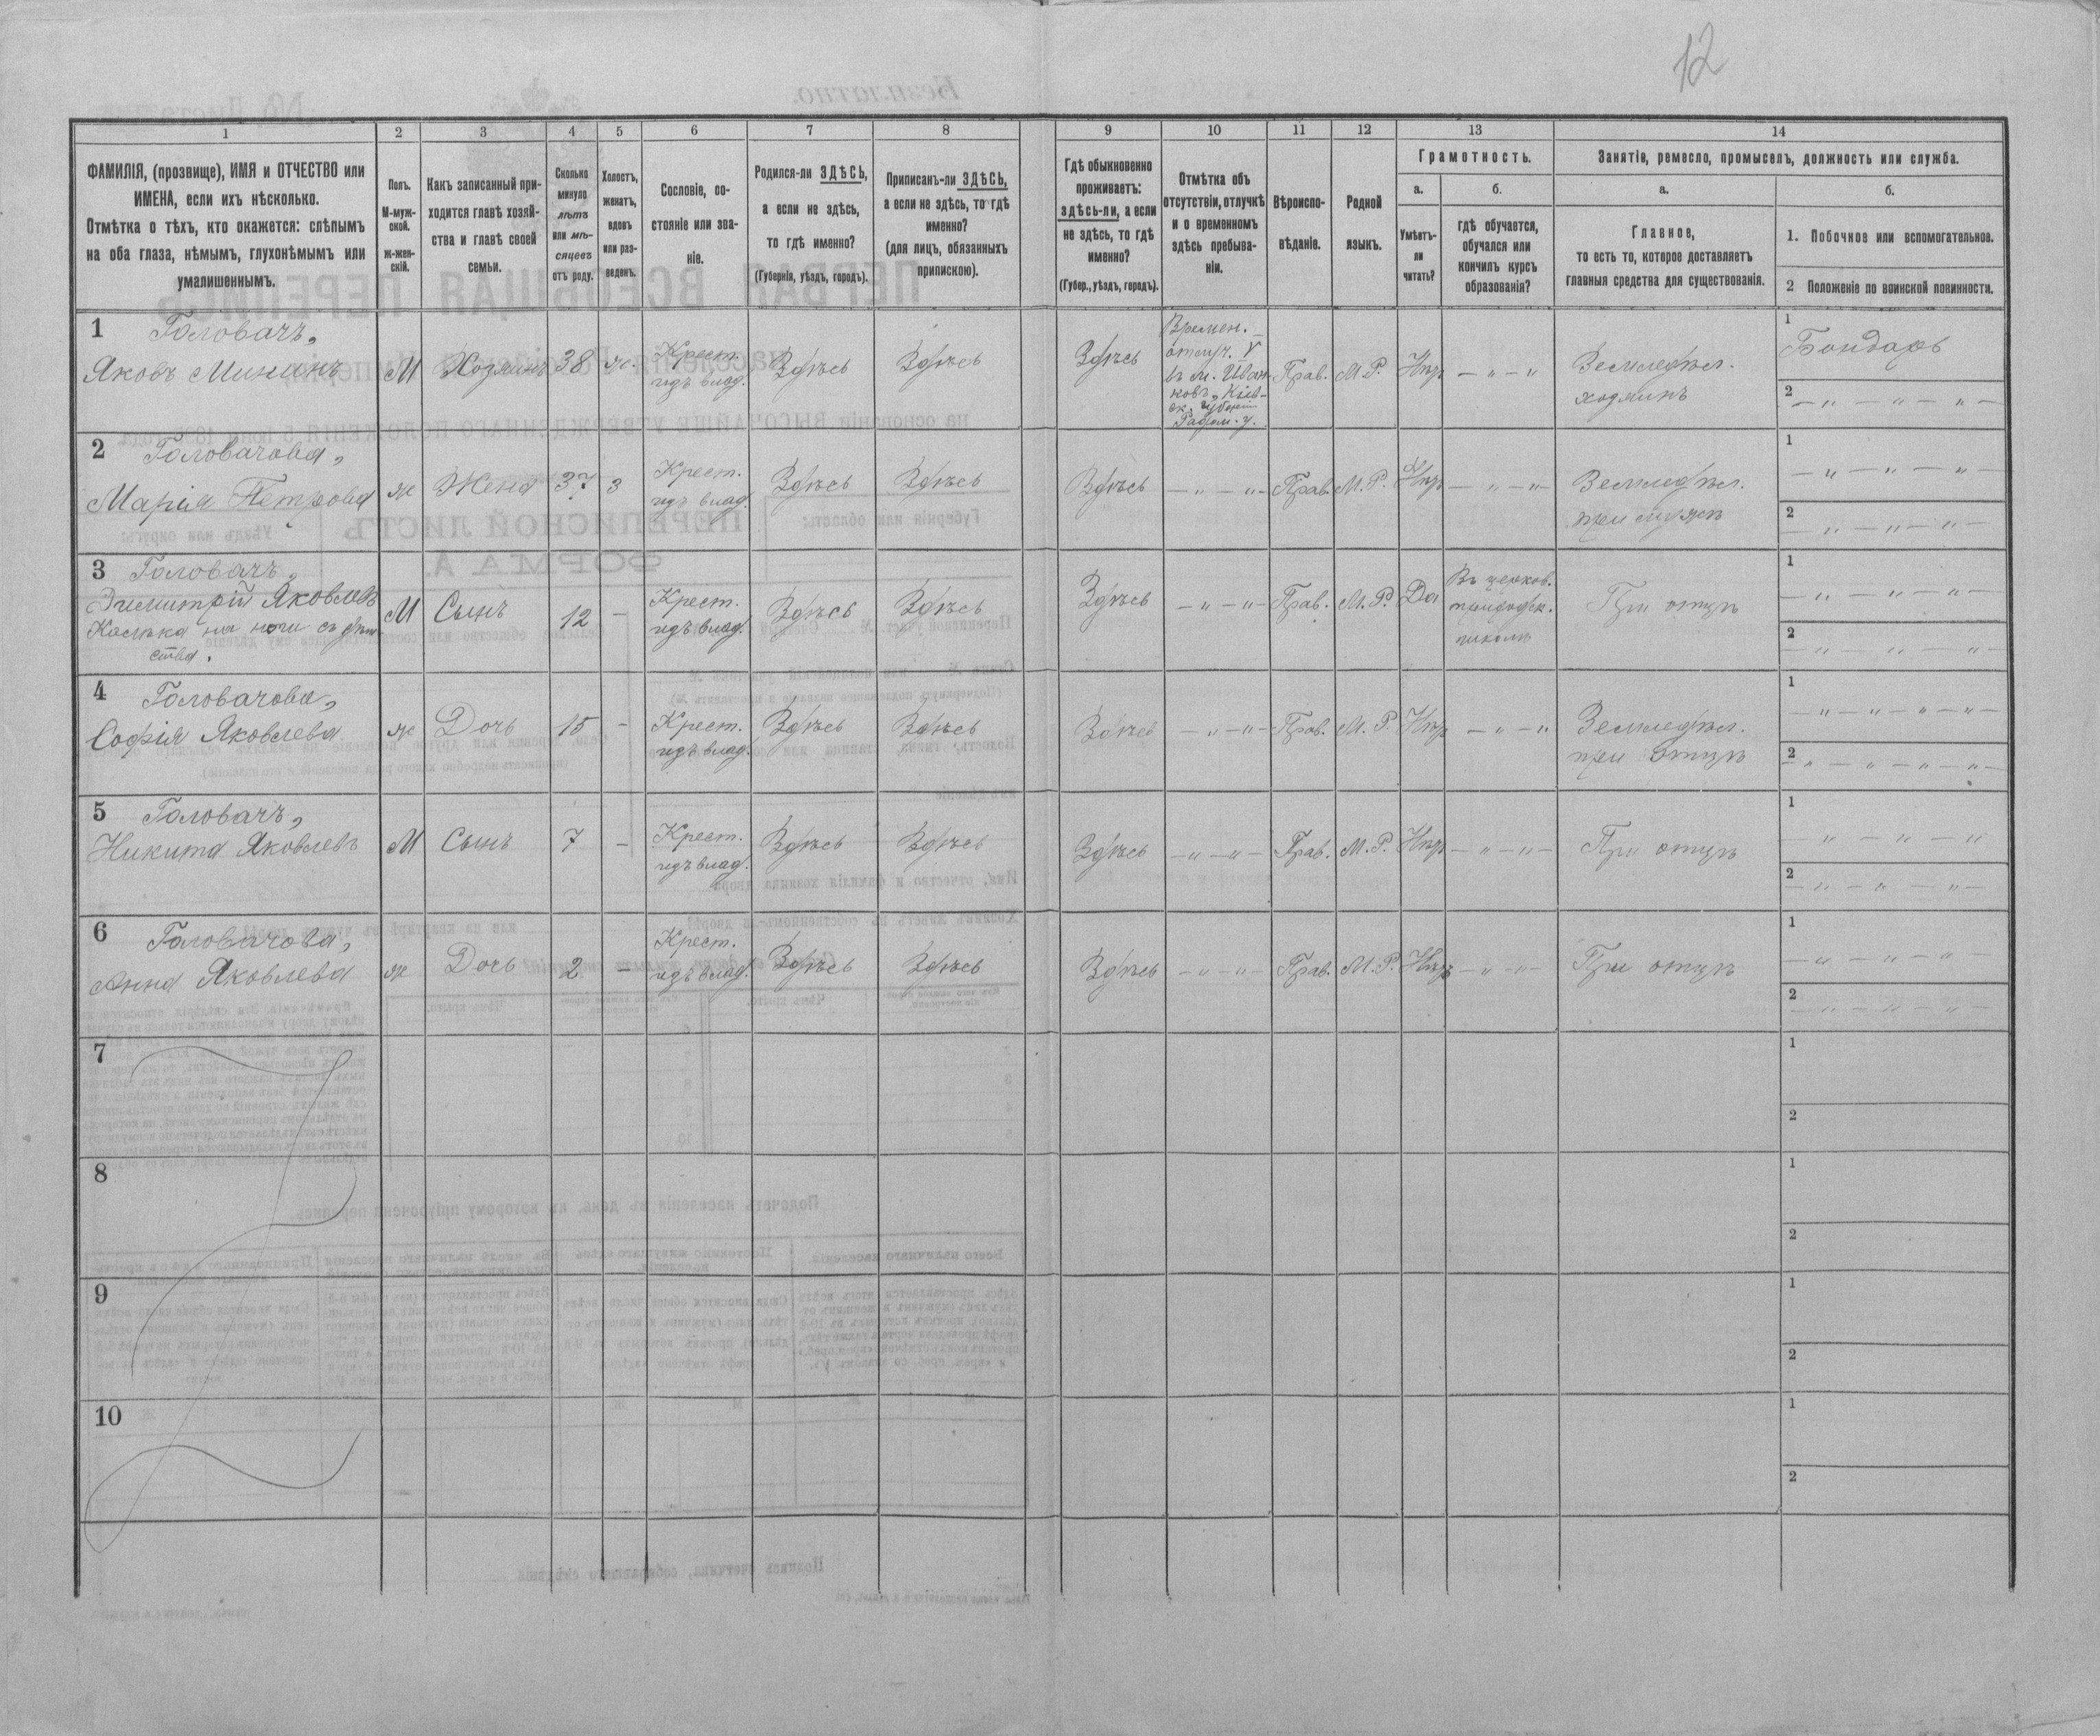 12
1 2 3 4 5 6 7 8 9 10 11 12 13 14
ФАМИЛІЯ, (прозвище), ИМЯ и ОТЧЕСТВО или
ИМЕНА, если ихъ нѣсколько.
Отмѣтка о тѣхъ, кто окажется: слѣпымъ
на оба глаза, нѣмымъ, глухонѣмымъ или
умалишеннымъ.
Полъ.
М-муж-
ской.
Ж-жен-
скій.
Какъ записанный при-
ходится главѣ хозяй-
ства и главѣ своей
семьи.
Сколько
минуло
лѣтъ
или мѣ-
сяцевъ
отъ роду.
Холостъ,
женатъ,
вдовъ
или раз-
веденъ.
Сословіе, со-
стояніе или зва-
ніе.
Родился-ли ЗДѢСЬ,
а если не здѣсь,
то гдѣ именно?
(Губернія, уѣздъ, городъ).
Приписанъ-ли ЗДѢСЬ,
а если не здѣсь, то гдѣ
именно?
(для лицъ, обязанныхъ
припискою).
Гдѣ обыкновенно
проживаетъ:
здѣсь-ли, а если
не здѣсь, то гдѣ
именно?
(Губер., уѣздъ, городъ).
Отмѣтка объ
отсутствіи, отлучкѣ
и о временномъ
здѣсь пребыва-
ніи.
Вѣроиспо-
вѣданіе.
Родной
языкъ.
Грамотность.
а.
Умѣетъ-
ли
читать?
б.
гдѣ обучается,
обучался или
кончилъ курсъ
образованія?
Занятіе, ремесло, промыселъ, должность или служба.
а.
Главное,
то есть то, которое доставляетъ
главныя средства для существованія.
б.
1. Побочное или вспомогательное.
2 Положеніе по воинской повинности.
1 Головачъ,
Яковъ Мининъ
М
Хозяинъ
38
ж.
Крест.
гдъ влад.
Здѣсь
Здѣсь
Здѣсь
Времен.
отлуч. V
въ м. Иван-
ковъ, Кіев-
ск. губерн
Радом. у.
Прав.
М.Р.
Нѣтъ
— " — "
Земледѣл.
хозяинъ
1 Бондарь
2 — " — " — " —
2 Головачова,
Марія Петрова
ж
Жена
37
з
Крест.
гдъ влад.
Здѣсь
Здѣсь
Здѣсь
— " — " —
Прав.
М.Р.
Нѣтъ
— " — " —
Земледѣл.
при мужѣ
1 — " — " — " —
2 — " — " — " —
3 Головачъ,
Димитрій Яковлевъ
Калѣка на ноги съ дѣт
ства.
М
Сынъ
12
—
Крест.
гдъ влад.
Здѣсь
Здѣсь
Здѣсь
— " — " —
Прав.
М.Р.
Да
Въ церков.
приходск.
школѣ
При отцѣ
1 — " — " — " —
2 — " — " — " —
4 Головачова,
Софія Яковлева
ж
Дочь
15
—
Крест.
гдъ влад.
Здѣсь
Здѣсь
Здѣсь
— " — " —
Прав.
М.Р.
Нѣтъ
— " — "
Земледѣл.
при отцѣ
1 — " — " — " — " —
2 — " — " — " — " —
5 Головачъ,
Никита Яковлевъ
М
Сынъ
7
—
Крест.
гдъ влад.
Здѣсь
Здѣсь
Здѣсь
— " — " —
Прав.
М.Р.
Нѣтъ
— " — " —
При отцѣ
1 — " — " — "
2 — " — " — " —
6 Головачова,
Анна Яковлева
ж
Дочь
2
—
Крест.
гдъ влад.
Здѣсь
Здѣсь
Здѣсь
— " — " —
Прав.
М.Р.
Нѣтъ
— " — " —
При отцѣ
1 — " — " — " —
2 — " — " — " —
7
1
2
8
1
2
9
1
2
10
1
2